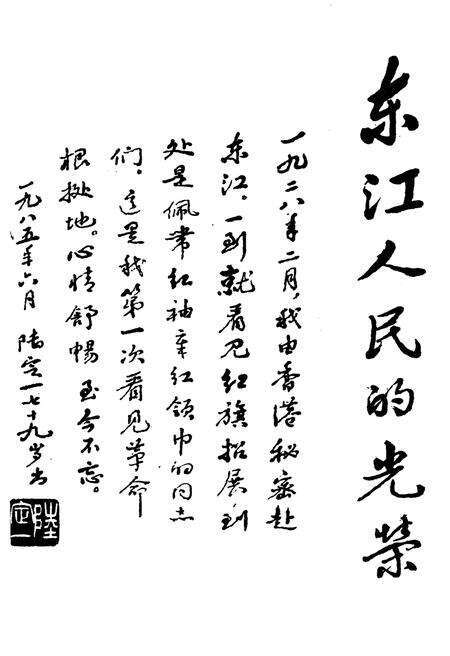 东江人民的光荣
一九二八年二月，我由香港秘密赴
东江，一到就看见红旗招展，到
处是佩带红袖章红领巾的同志
们。这是我第一次看见革命
根据地。心情舒畅至今不忘。
一九八五年六月 陆定一七十九岁书
陸定一